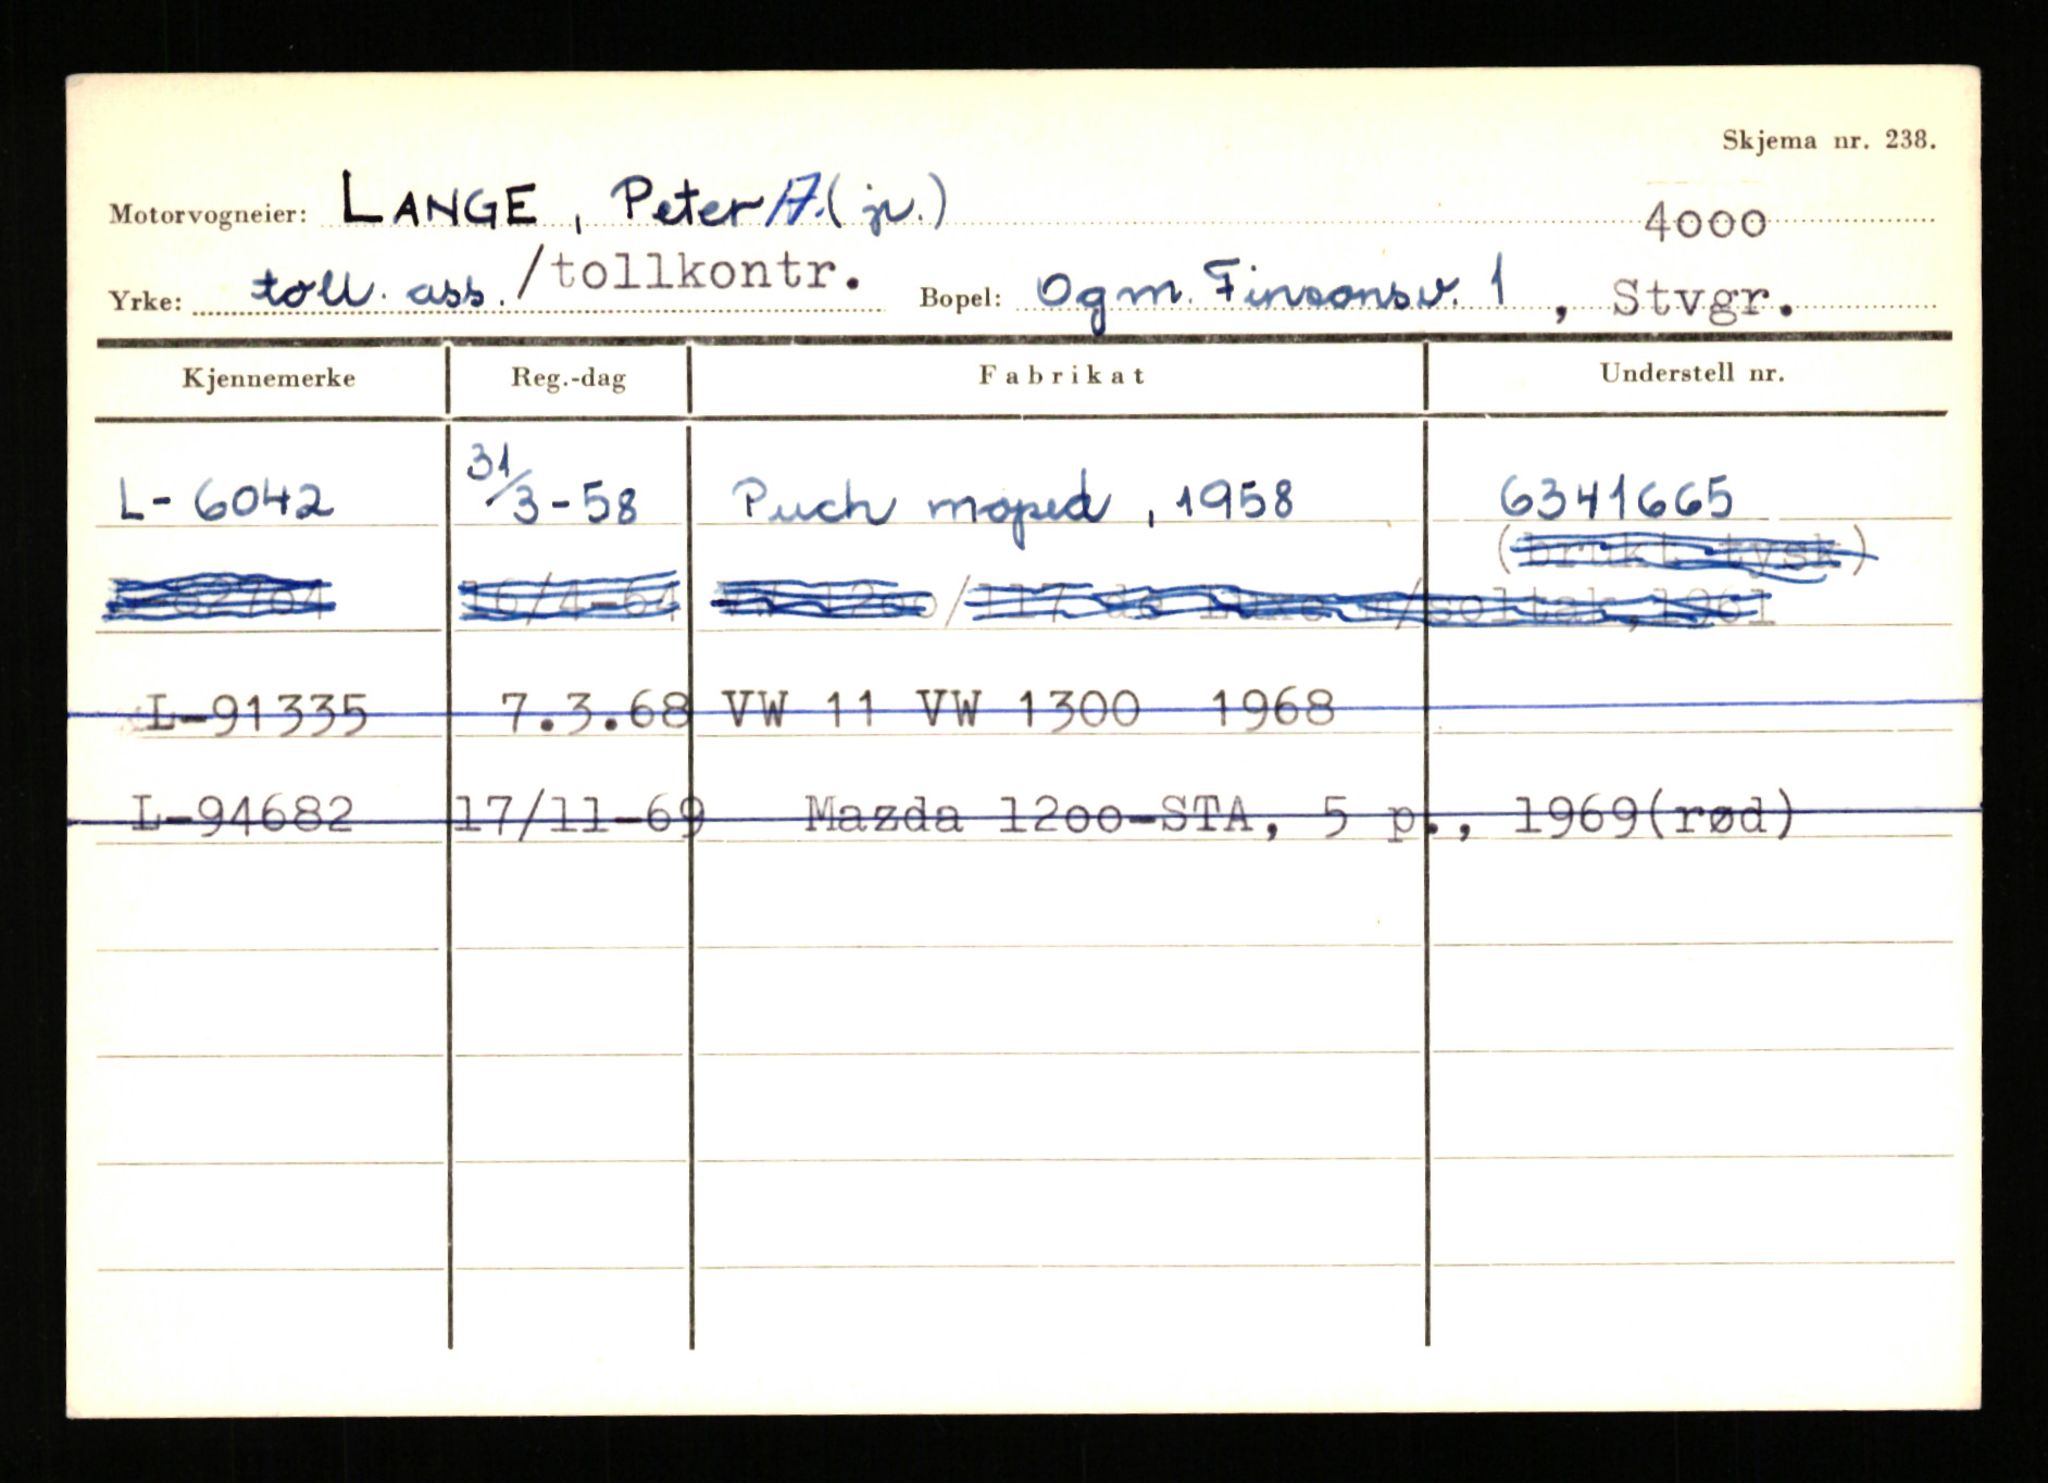 Skjema nr. 238.
Motorvogneier: LANGE, Peter A. (jr.) 4000
Yrke: toll. ass./tollkontr. Bopel: Ogm. Finsonsv. 1, Stvgr.
Kjennemerke Reg.-dag Fabrikat Understell nr.
L- 6042 31/3-58 Puch moped, 1958 6341665
(brukt tysk)
16/4-64 VW 1200/117 de Luxe m/soltak, 1961
L-91335 7.3.68 VW 11 VW 1300 1968
L-94682 17/11-69 Mazda 12oo-STA, 5 p., 1969(rød)